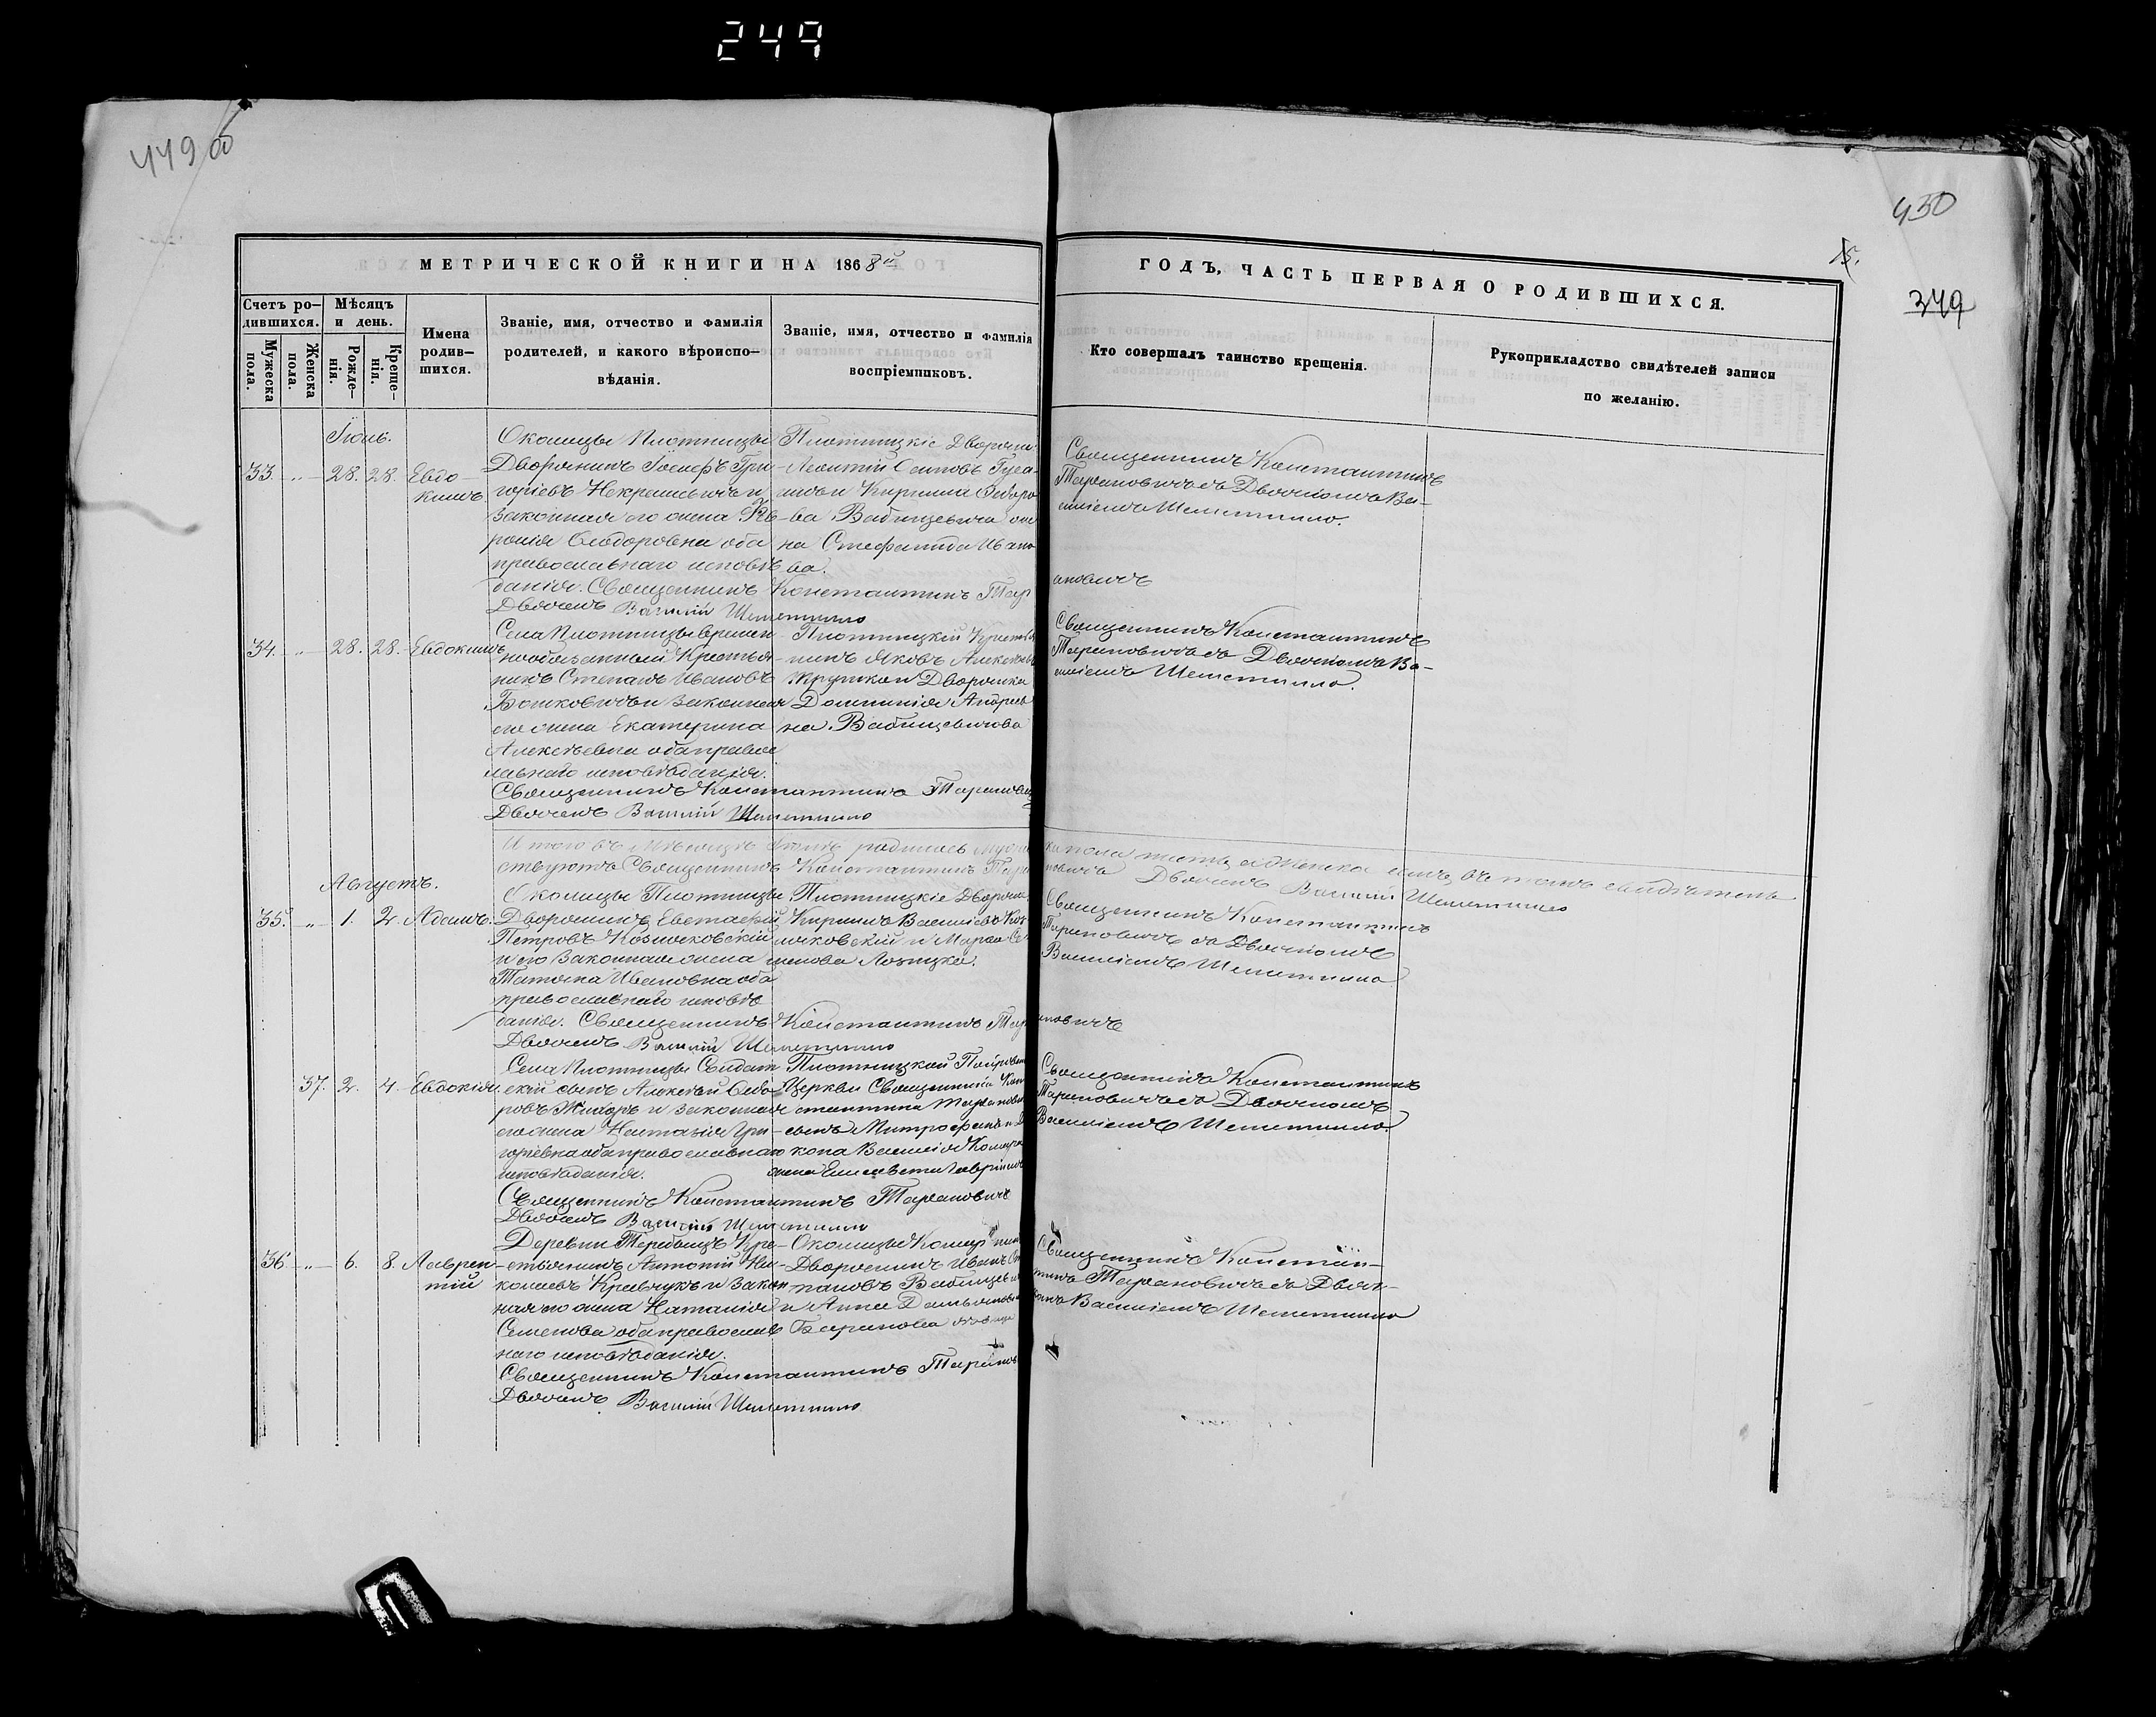 249
449 об
450
15.
349
МЕТРИЧЕСКОЙ КНИГИ НА 1868й
ГОДЪ, ЧАСТЬ ПЕРВАЯ О РОДИВШИХСЯ.
Счетъ ро-
дившихся.
Мужеска
пола.
Женска
пола.
Мѣсяцъ
и день.
Рожде-
нія.
Креще-
нія.
Имена
родив-
шихся.
Званіе, имя, отчество и фамилія
родителей, и какого вѣроиспо-
вѣданія.
Званіе, имя, отчество и фамилія
воспріемниковъ.
Кто совершалъ таинство крещенія.
Рукоприкладство свидѣтелей записи
по желанію.
33. " 28. 28. Евдо-
кимъ
Околицы Плотницы
Дворянинъ Іосифъ Гри-
горіевъ Некрашевичъ и
законная его жена
Ѳеодоровна оба
православнаго исповѣ
данія. Священникъ Константинъ Тар
Дьячекъ Василій Шеметилло
Плотницкіе Дворяни
Леонтій Осиповъ
и Кирилла Ѳедоро
ва Вабищевича
на Стефанида Ивано
ва.
Священникъ Константинъ
Тарановичъ съ Дьячкомъ Ва-
силіемъ Шеметилло.
ановичъ
34. " 28. 28. Евдокимъ
Села Плотницы времен
нообязанный Крестья
нинъ Степанъ Ивановъ
Бошковичъ и законная
его жена Екатерина
Алексѣевна оба правос
лавнаго исповѣданія.
Священникъ Константинъ Таранович
Дьячекъ Василій Шеметилло
Плотницкій Крестья
нинъ Яковъ Алексѣев
и Дворянка
Домникія Андреев
на Вабищевичова
Священникъ Константинъ
Тарановичъ съ Дьячкомъ Ва-
силіемъ Шеметилло.
Итого въ Мѣсяцѣ родилось муже
ска пола пять, а женска въ томъ свидѣтель
ствуютъ Священникъ Константинъ Тара
новичъ Дьячекъ Василій Шеметилло
Августъ.
35. " 1. 2. Адамъ.
Околицы Плотницы
Дворянинъ Евстафій
Петровъ Козляковскій
и его законная жена
Татіяна Ивановна оба
православнаго исповѣ
данія. Священникъ Константинъ Тар
Дьячекъ Василій Шеметилло
Плотницкіе Дворяни
Кириллъ Васильевъ Коз
ляковскій и Марѳа Се
менова Лозицка.
Священникъ Константинъ
Тарановичъ съ Дьячкомъ
Василіемъ Шеметилло
ановичъ
37. 2. 4. Евдокія.
Села Плотницы Солдат
скій сынъ Алексѣй Ѳедо
ровъ Жихаръ и законная
его жена Настазія Гри-
горіевна оба православнаго
исповѣданія.
Священникъ Константинъ Тарановичъ
Дьячекъ Василій Шеметилло
Плотницкой Покровск
Церкви Священника Кон
стантина Таранович
сынъ Митрофанъ и Д
кона Василія
жена Елисавета Гавріилов
Священникъ Константинъ
Тарановичъ съ Дьячкомъ
Василіемъ Шеметилло.
36 " 6. 8. Лаврен-
тій
Деревни Теребличъ Кре-
стьянинъ Антоній Ни-
колаевъ Кравчукъ и закон
ная его жена Наталія
Семенова оба православ
наго исповѣданія.
Священникъ Константинъ Таранов
Дьячекъ Василій Шеметилло
Околицы
Дворянинъ Иванъ
пановъ Вабищевич
и Анна Демьянова
Баранова
Священникъ Констан-
тинъ Тарановичъ съ Дьяч-
комъ Василіемъ Шеметилло